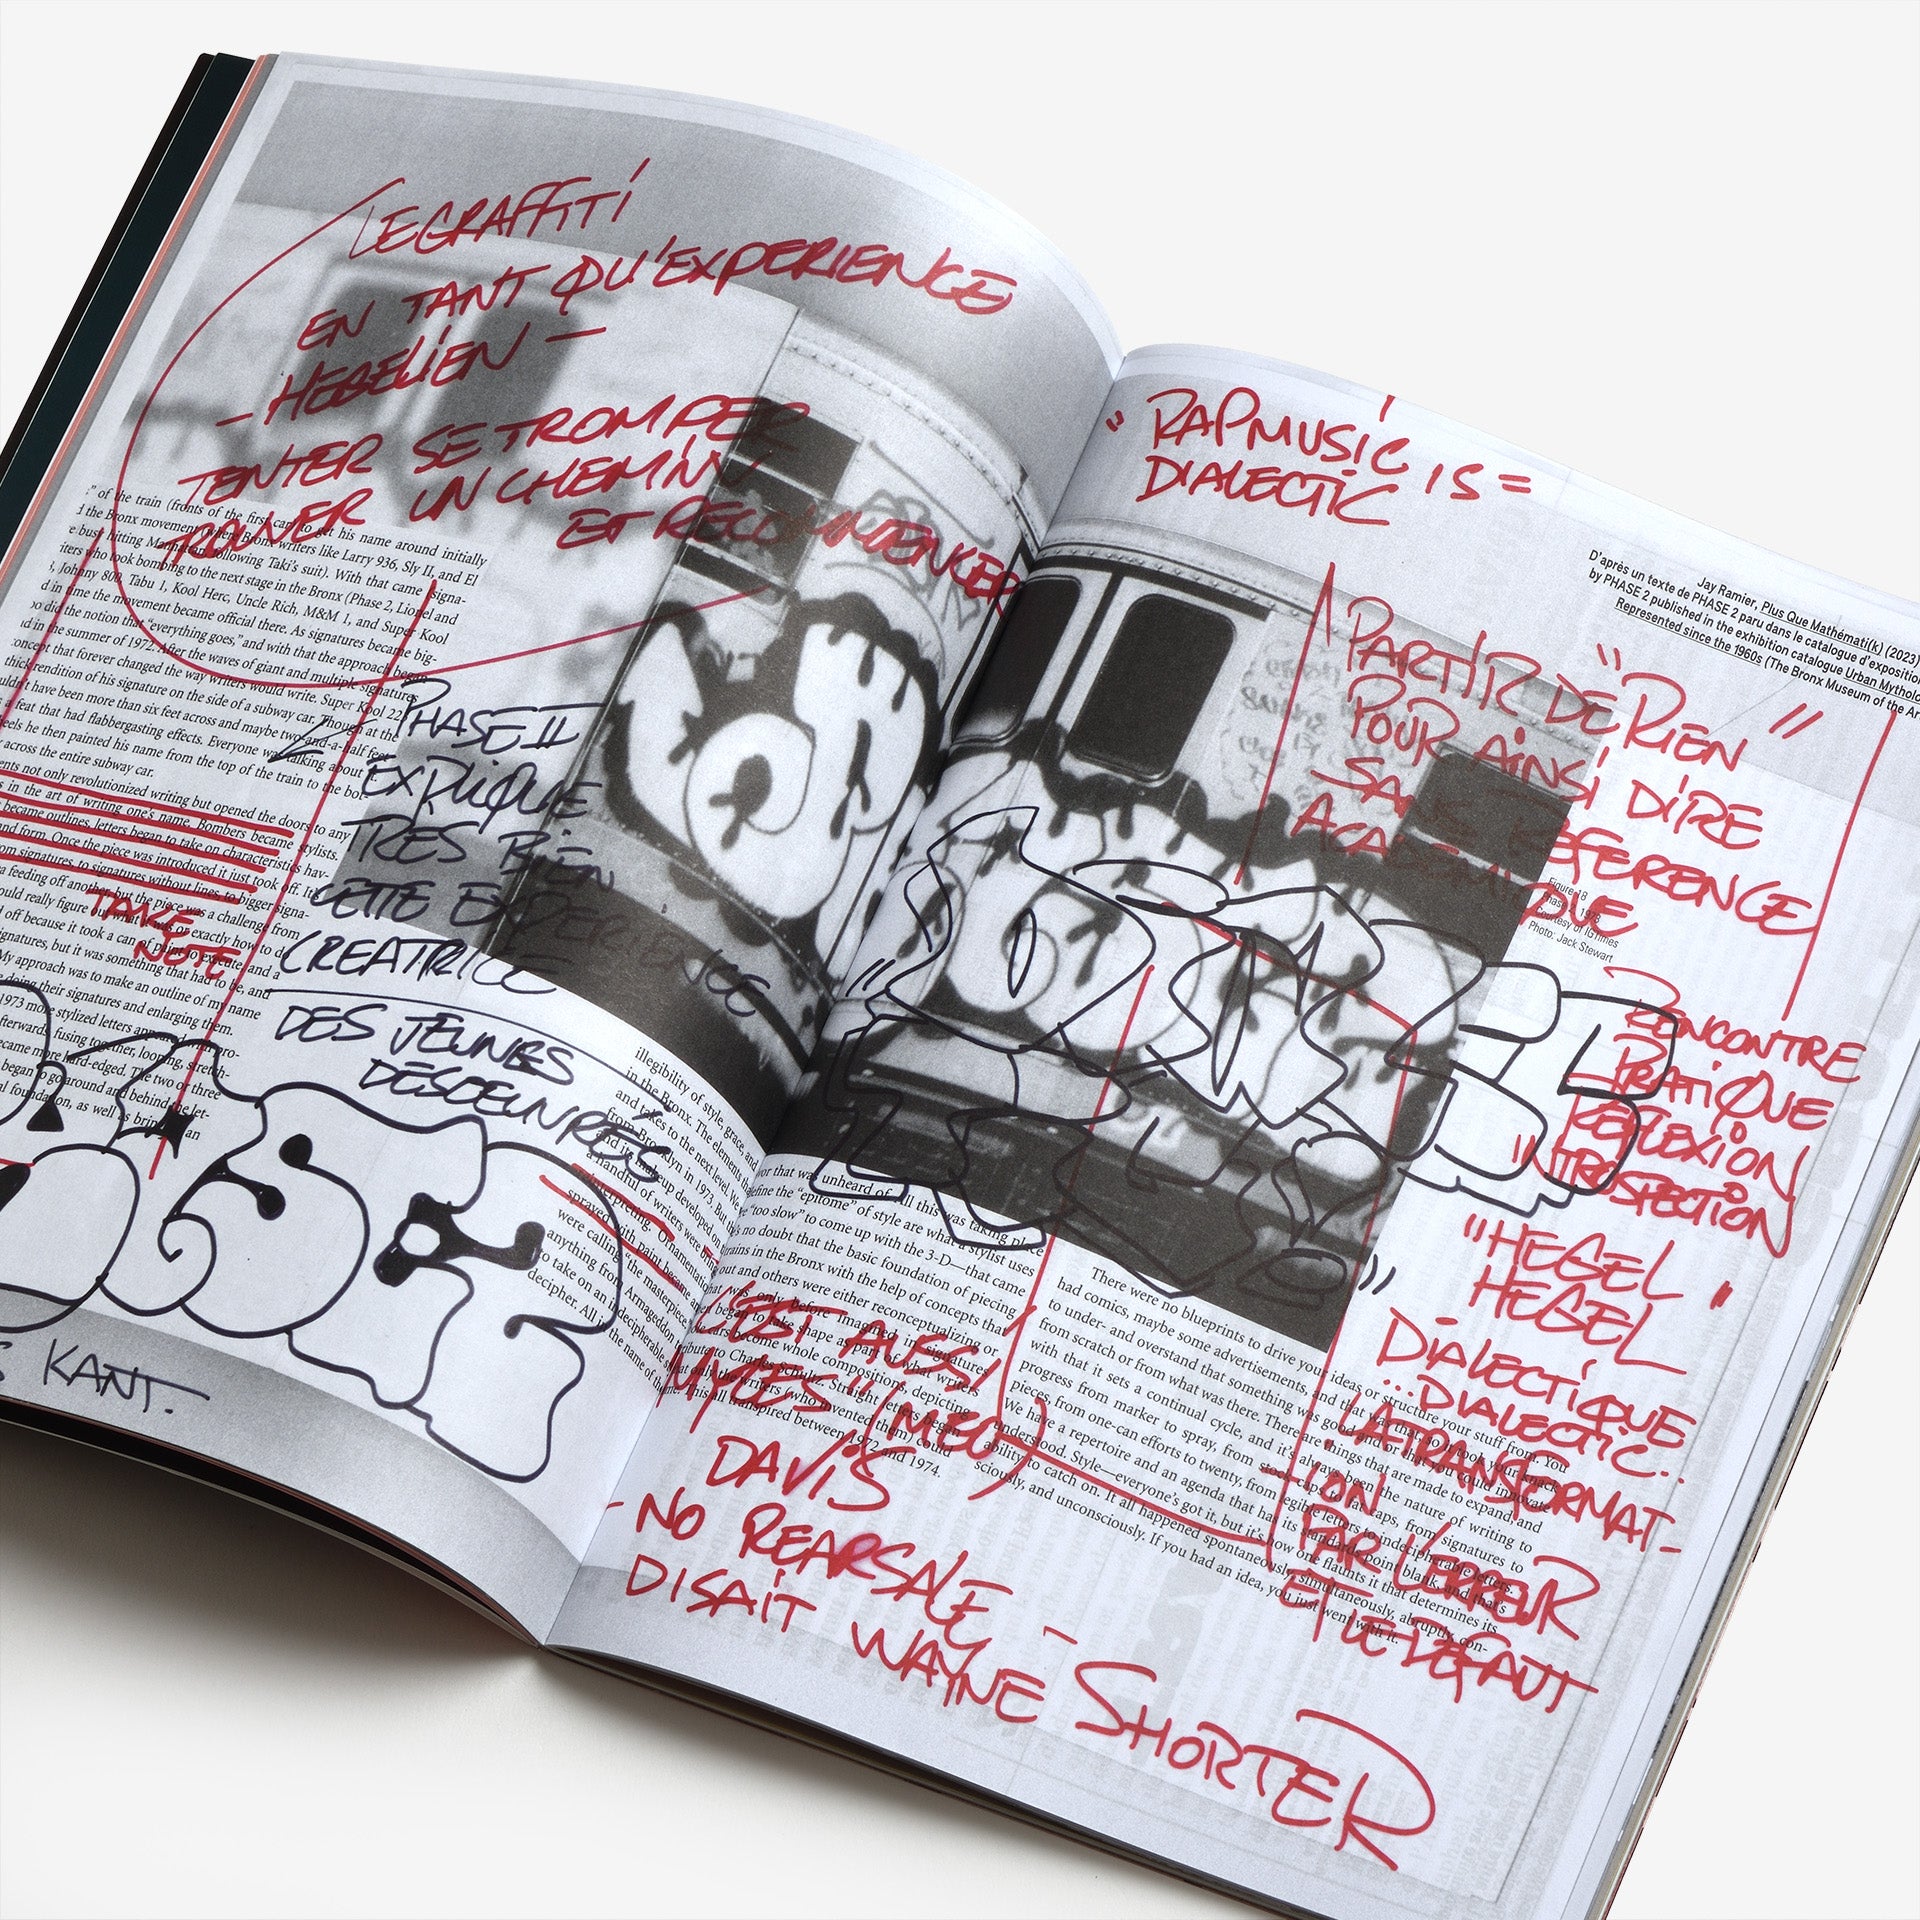 LE GRAFFITI
EN TANT QU'EXPERIENCE
- HEGELIEN -
TENTER SE TROMPER
TROUVER UN CHEMIN
ET RECOMMENCER
of the train (fronts of the first car) to get his name around initially
the Bronx movement, where Bronx writers like Larry 936, Sly II, and El
hitting Manhattan following Taki's suit). With that came
who took bombing to the next stage in the Bronx (Phase 2, Lionel and
Johnny 800, Tabu 1, Kool Herc, Uncle Rich, M&M 1, and Super Kool
time the movement became official there. As signatures became big-
did the notion that "everything goes," and with that the approach began
in the summer of 1972. After the waves of giant and multiple signatures
that forever changed the way writers would write. Super Kool 223
rendition of his signature on the side of a subway car. Though at the
have been more than six feet across and maybe two-and-a-half feet
a feat that had flabbergasting effects. Everyone was talking about
he then painted his name from the top of the train to the bot-
across the entire subway car.
not only revolutionized writing but opened the doors to any
in the art of writing one's name. Bombers became stylists,
became outlines, letters began to take on characteristics hav-
and form. Once the piece was introduced it just took off. It
signatures, to signatures without lines, to bigger signa-
feeding off another, but the piece was a challenge from
could really figure out what it was or exactly how to d
off because it took a can of paint to execute, and a
signatures, but it was something that had to be, and
My approach was to make an outline of my name
doing their signatures and enlarging them.
1973 more stylized letters
fusing together, looping, stretch-
became more hard-edged. The two or three
began to go around and behind the let-
foundation, as well as bring an
TAKE
NOTE
PHASE II
EXPLIQUE
TRES BIEN
CETTE
CREATRICE
DES JEUNES
DESOEUVRES
KANT.
illegibility of style, grace, and
in the Bronx. The elements
and takes to the next level. We
from Brooklyn in 1973. But
and its makeup developed on
a handful of writers were
interpreting. Ornamentation
sprayed with paint became
were calling "the masterpiece
anything from Armageddon
to take on an indecipherable
decipher. All in the name of
"RAP MUSIC IS =
DIALECTIC
Jay Ramier, Plus Que Mathémati(k) (2023)
D'après un texte de PHASE 2 paru dans le catalogue d'expositio
by PHASE 2 published in the exhibition catalogue Urban Mytholo
Represented since the 1960s (The Bronx Museum of the Ar
PARTIR DE "RIEN"
POUR AINSI DIRE
SANS REFERENCE
ACADEMIQUE
Figure 18
Phase 2, 1973
Courtesy of IGTimes
Photo: Jack Stewart
RENCONTRE
PRATIQUE
REFLEXION
INTROSPECTION
"HEGEL"
HEGEL
DIALECTIQUE
...DIALECTIC..
LA TRANSFORMAT-
ION
PAR L'ERREUR
ET LE DEFAUT
that was unheard of. All this was taking place
define the "epitome" of style are what a stylist uses
"too slow" to come up with the 3-D—that came
no doubt that the basic foundation of piecing
trains in the Bronx with the help of concepts that
out and others were either reconceptualizing or
what was only before imagined in signatures
began to take shape as part of what writers
become whole compositions, depicting
tribute to Charles Schulz. Straight letters began
that only the writers (who invented them) could
This all transpired between 1972 and 1974.
C'EST AUSSI
MYLES
DAVIS
- NO REARSALE -
DISAIT WAYNE SHORTER
There were no blueprints to drive your ideas or structure your stuff from. You
had comics, maybe some advertisements, and that was that, so it took your knack
to under- and overstand that something was good and/or that you could innovate
from scratch or from what was there. There are things that are made to expand, and
with that it sets a continual cycle, and it's always been the nature of writing to
progress from marker to spray, from stock caps to fat caps, from signatures to
pieces, from one-can efforts to twenty, from legible letters to indecipherable letters.
We have a repertoire and an agenda that has its standard point blank, and that's
understood. Style—everyone's got it, but it's how one flaunts it that determines its
ability to catch on. It all happened spontaneously, simultaneously, abruptly, con-
sciously, and unconsciously. If you had an idea, you just went with it.